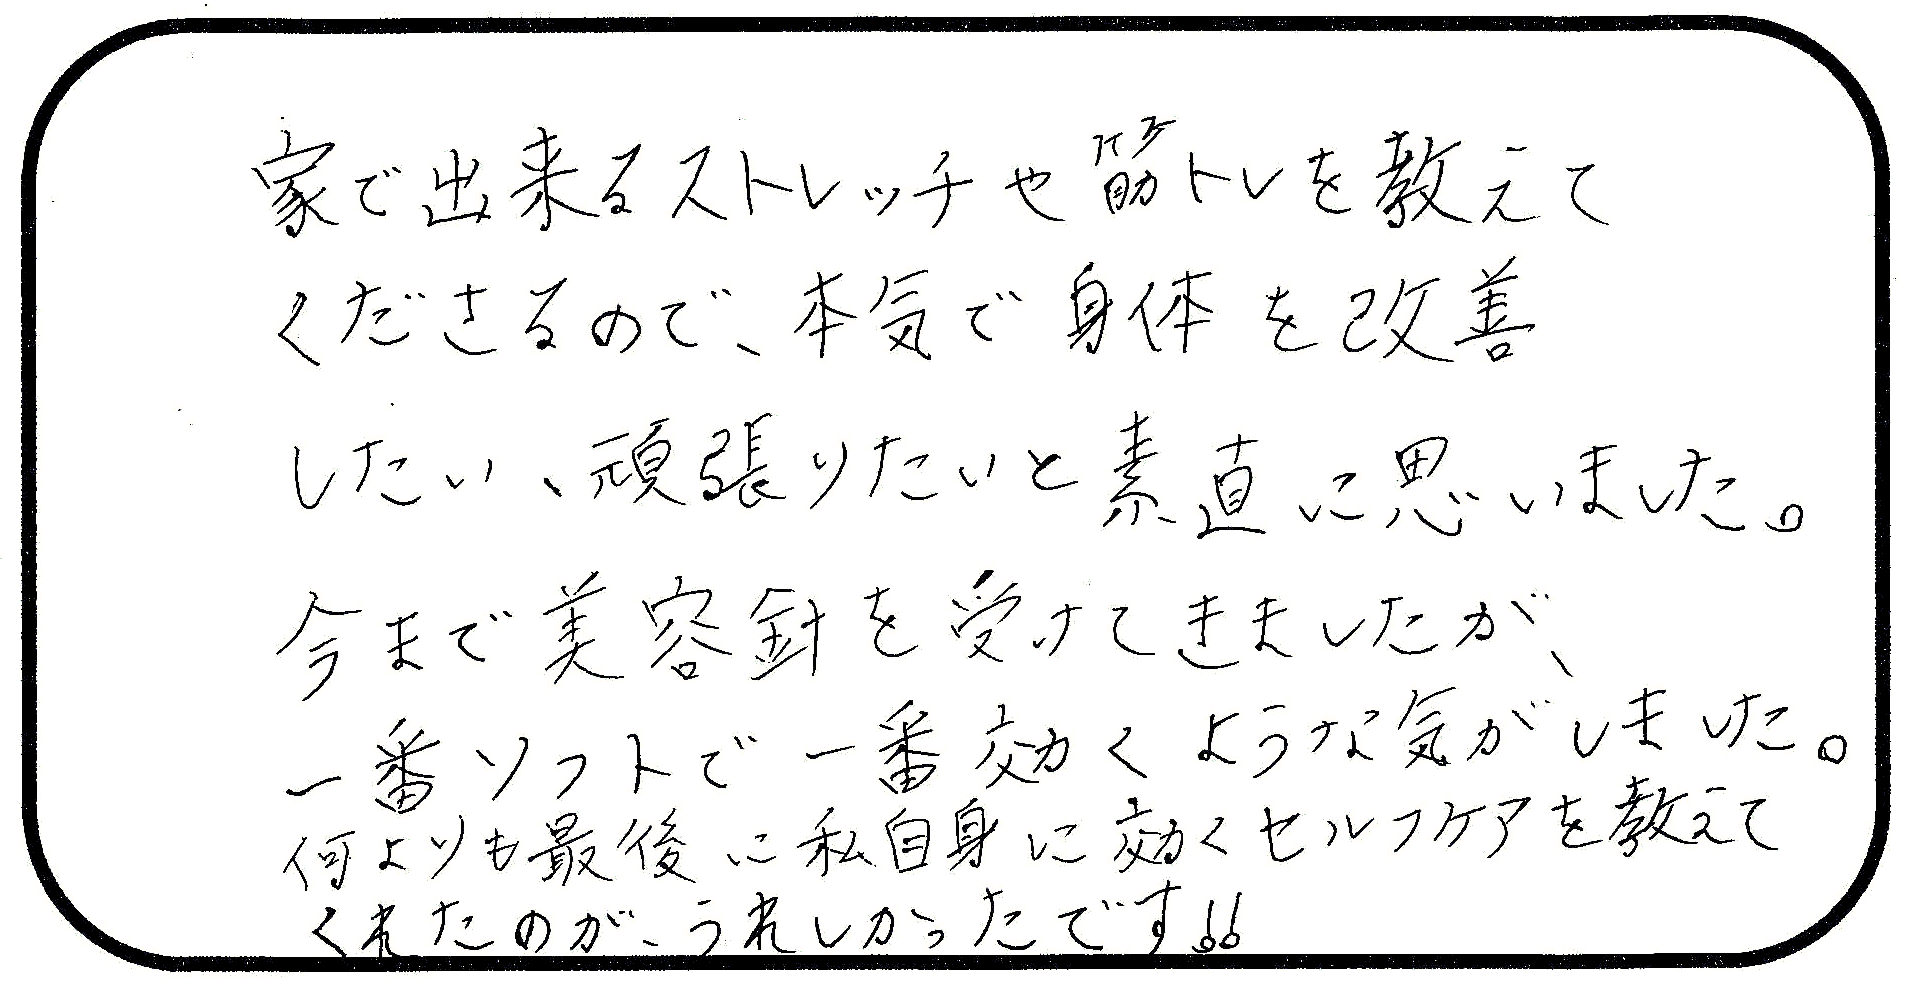 家で出来るストレッチや筋トレを教えて
くださるので、本気で身体を改善
したい、頑張りたいと素直に思いました。
今まで美容針を受けてきましたが、
一番ソフトで一番効くような気がしました。
何よりも最後に私自身に効くセルフケアを教えて
くれたのが、うれしかったです!!